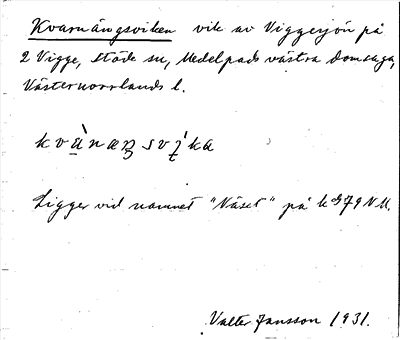 Kvarnängsviken vik av Viggesjön på
2 Vigge, Stöde sn, Medelpads västra domsaga,
Västernorrlands l.
kvà̱næŋsvì̱ka
Ligger vid namnet "Näset" på k 79 NV.
Valter Jansson 1931.